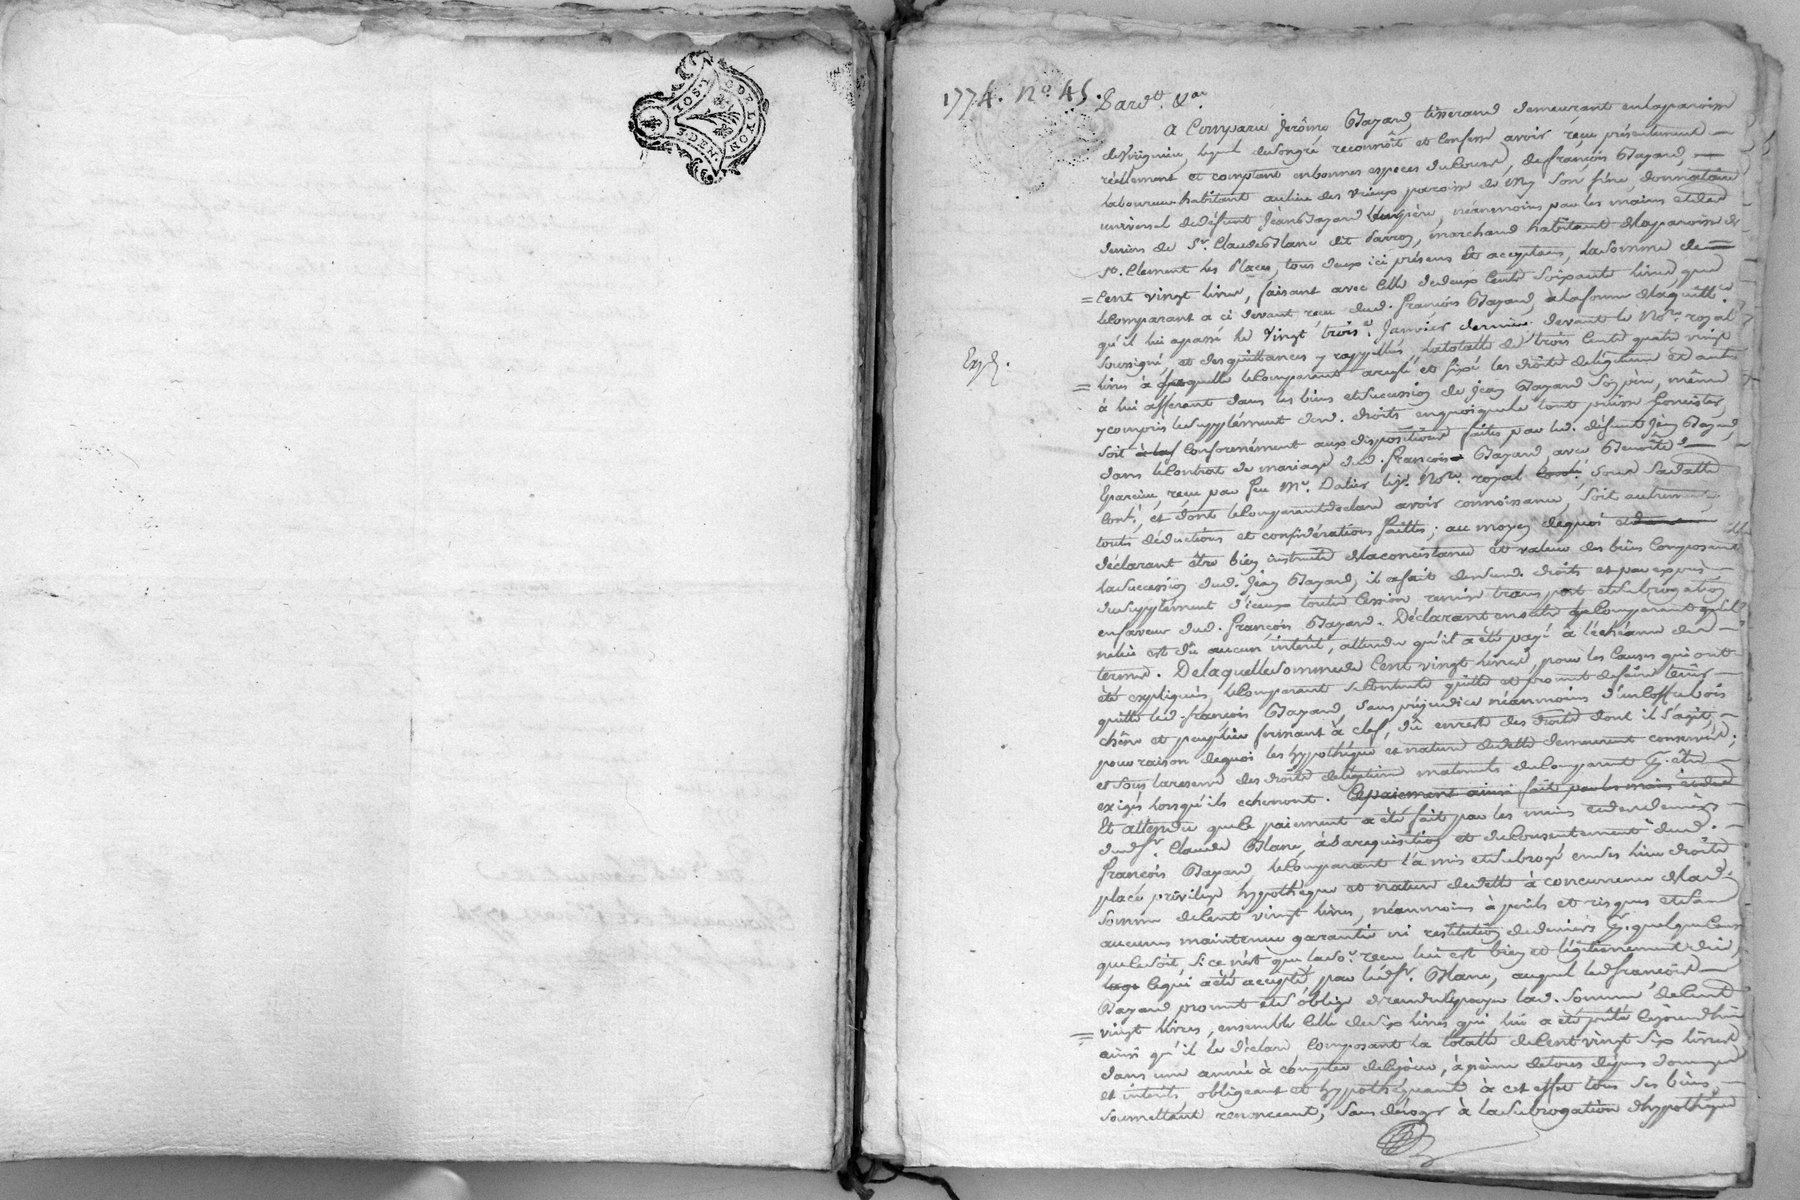 GEN.DE LYON
1.SOL.
1774. N.o 45. Pardt. &ar.
a Comparu Jerôme Bayard tisserand demeurant en la paroisse
de Virigneu, lequel de son gré reconnoît et confesse avoir reçu présentement
réellement et comptant en bonnes especes du cours, de françois Bayard,
laboureur habitant au lieu des Vrieux paroisse de son frère, donnataire
universel de défunt Jean Bayard leur père, néanmoins par les mains et des
deniers de Sr. Claude Blanc dit Parroz, marchand habitant de la paroisse de
St. Clement les Places, tous deux ici présens et acceptans, la somme de
Cent vingt livres, faisant avec celle de deux cents soixante livres, que
le Comparant a ci devant reçu dud. françois Bayard, a la forme de la quittce.
qu'il lui a passé le Vingt troise. Janvier dernier devant le Nore. royal
soussigné, et des quittances y rappellés, la totalle de trois cents quatre vingt
livres à laquelle le Comparant a reglé et fixé les droits de légitime et autres
à lui afférant dans les biens et succession de Jean Bayard son père, même
y compris le supplément desd. droits en quoi que le tout puisse consister,
Exp.d.
soit conformément aux dispositions faites par led. défunt Jean Bayard,
dans le Contrat de mariage dud. françois Bayard, avec Benoîte
Gparcieu, reçu par feu Me. Dalier Nore. royal sous sa datte
Conté., et dont le Comparant déclare avoir connoissance, soit autrement,
touts déductions et considérations faittes; au moyen de quoi
déclarant être bien instruit de la concistance et valeur des biens composant
la succession dud. Jean Bayard, il a fait desdsusd. droits et par exprès
du supplément d'iceux toutes cession remise transport et subrogation
en faveur dud. françois Bayard. Déclarant ensuite le Comparant qu'il
ne lui est dû aucun intérêt, attendu qu'il a été payé à l'échéance des
termes. De laquelle somme de Cent vingt livres, pour les causes qui ont
été expliquées, le Comparant se contente quitte et promet de faire tenir
quitte led. françois Bayard, sans préjudice néanmoins d'un coffre bois
chêne et peuplier fermant à clef, dû en reste des droits dont il s'agit,
pour raison de quoi les hypothèque et nature de dette demeurent conservés;
et sous la reserve des droits de légitime maternels du Comparant pr. être
exigés lorsqu'ils echerront. Le paiement ainsi fait par les mains et des
Et attendu que le paiement a été fait par les mains et des deniers
dud. Sr. Claude Blanc, à sa requisition et du consentement dud.
françois Bayard, le Comparant l'a mis et subrogé en ses lieu droits
place privilege hypothèque et nature de dette à concurrence de lad.
somme de Cent vingt livres, néanmoins à perils et risques et sans
aucunes maintenue garantie ni restitution de deniers pr. quelque cause
que ce soit si ce n'est que la so.e reçue lui est bien et légitimement due,
ce qui a été accepté par led. Sr. Blanc, auquel led. françois
Bayard promet et s'oblige de rendre & payer lad. somme de Cent
vingt livres, ensemble celle de six livres qui lui a été prêtée ce jourd'hui
ainsi qu'il le déclare composant la totalle de Cent vingt six livres
dans une année à compter de ce jour, à peine de tous dépens dommages
et interêts, obligeant et hypothéquant à cet effet tous ses biens,
soumettant renonceant, sans déroger à la subrogation d'hypothèque